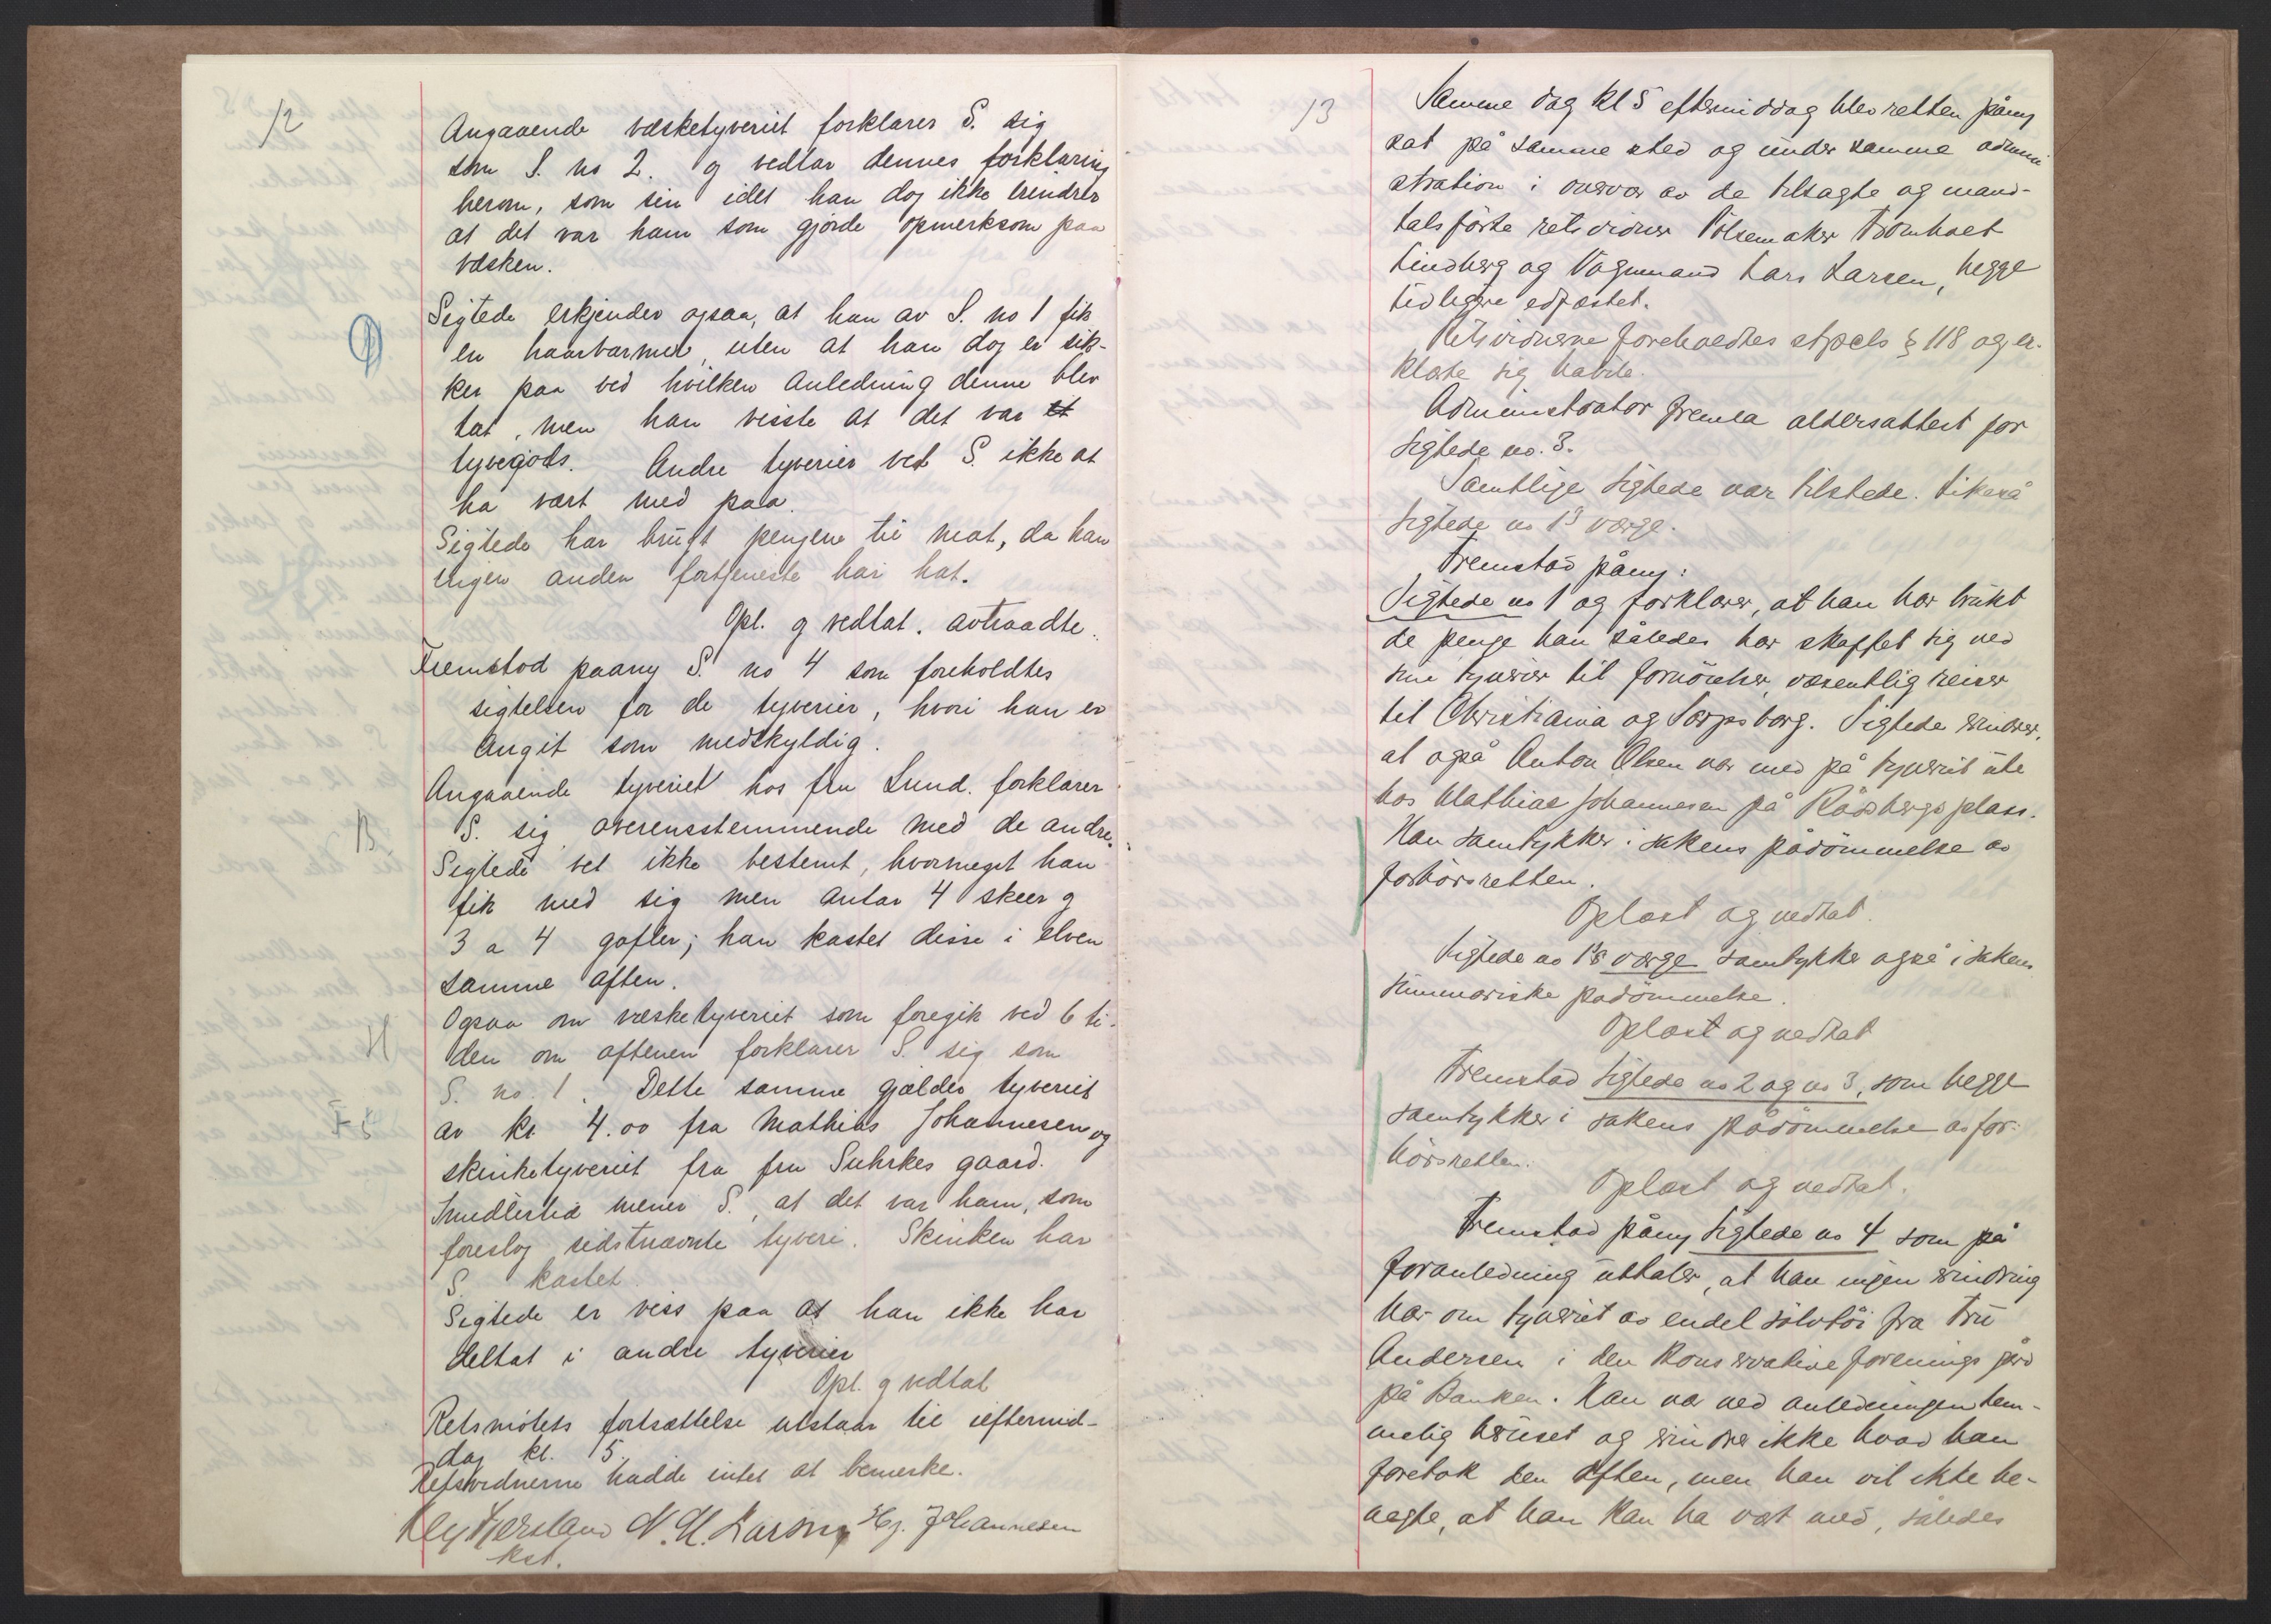 12
Angaaende væsketyveriet forklarer S. sig
som S. no 2. g vedtar dennes forklaring
herom, som sin idet han dog ikke erindrer
at det var ham som gjorde opmerksom paa
væsken.
Sigtede erkjender ogsaa, at han av S. no 1 fik
en haarbarmer, uten at han dog er sik-
ker paa ved hvilken anledning denne blev
tat, men han visste at det var et
tyvegods. Andre tyverier vet S. ikke at
ha vært med paa.
Sigtede har brugt pengene til mat, da han
ingen anden fortjeneste har hat.
Opl. g vedtat. avtraadte.
Fremstod paany S. no 4 som foreholdtes
sigtelsen for de tyverier, hvori han er
angit som medskyldig.
Angaaende tyveriet hos fru Lund. forklarer
B.
S. sig overensstemmende med de andre.
Sigtede vet ikke bestemt, hvormeget han
fik med sig men antar 4 skeer g
3 a 4 gafler; han kastet disse i elven
samme aften.
Ogsaa om væsketyveriet som foregik ved 6 ti-
H
den om aftenen forklarer S. sig som
S. no. 1. Dette samme gjælder tyveriet
F
av kr. 4.00 fra Mathias Johannesen og
skinketyveriet fra fru Suhrkes gaard.
Imedlertid mener S., at det var ham, som
foreslog sidstnævnte tyveri. Skinken har
S. kastet.
Sigtede er viss paa at han ikke har
deltat i andre tyverier
Opl. g vedtat
Retsmötets fortsættelse utstaar til eftermid-
dag kl. 5.
Retsvidnerne hadde intet at bemerke.
N. M. Larsen Hj. Johannesen
kst.
13
Samme dag kl 5 eftermiddag blev retten påny
sat på samme sted og under samme admini
stration i overvær av de tilsagte og mand-
talsförte retsvidner Pölsemaker Tromhoet
Lindberg og Vognmand Lars Larsen, begge
tidligere edfæstet.
Retsvidnerne foreholdtes stpcls § 118 og er-
klærte sig habile.
Administrator fremla aldersattest for
sigtede no. 3.
Samtlige sigtede var tilstede. Likeså
sigtede no 1s værge.
Fremstod påny:
Sigtede no 1 og forklarer, at han har brukt
de penge han således har skaffet sig ved
sine tyverier til fornöielser, væsentlig reiser
til Christiania og Sarpsborg. Sigtede erindrer,
at også Anton Olsen var med på tyveriet ute
hos Mathias Johannesen på Rödsbergs plass.
Han samtykker i sakens pådömmelse av
forhörsretten.
Oplæst og vedtat.
Sigtede no 1s værge samtykker også i sakens
summariske pådömmelse.
Oplæst og vedtat
Fremstod sigtede no 2 og no 3, som begge
samtykker i sakens pådömmelse av for-
hörsretten.
Oplæst og vedtat.
Fremstod påny sigtede no 4 som på
foranledning uttaler, at han ingen erindring
har om tyveriet av endel sölvtöi fra Fru
Andersen i den Konservative forenings gård
på Banken. Han var ved anledningen tem-
melig beruset og erindrer ikke hvad han
foretok den aften, men han vil ikke be-
negte, at han kan ha vært med, således